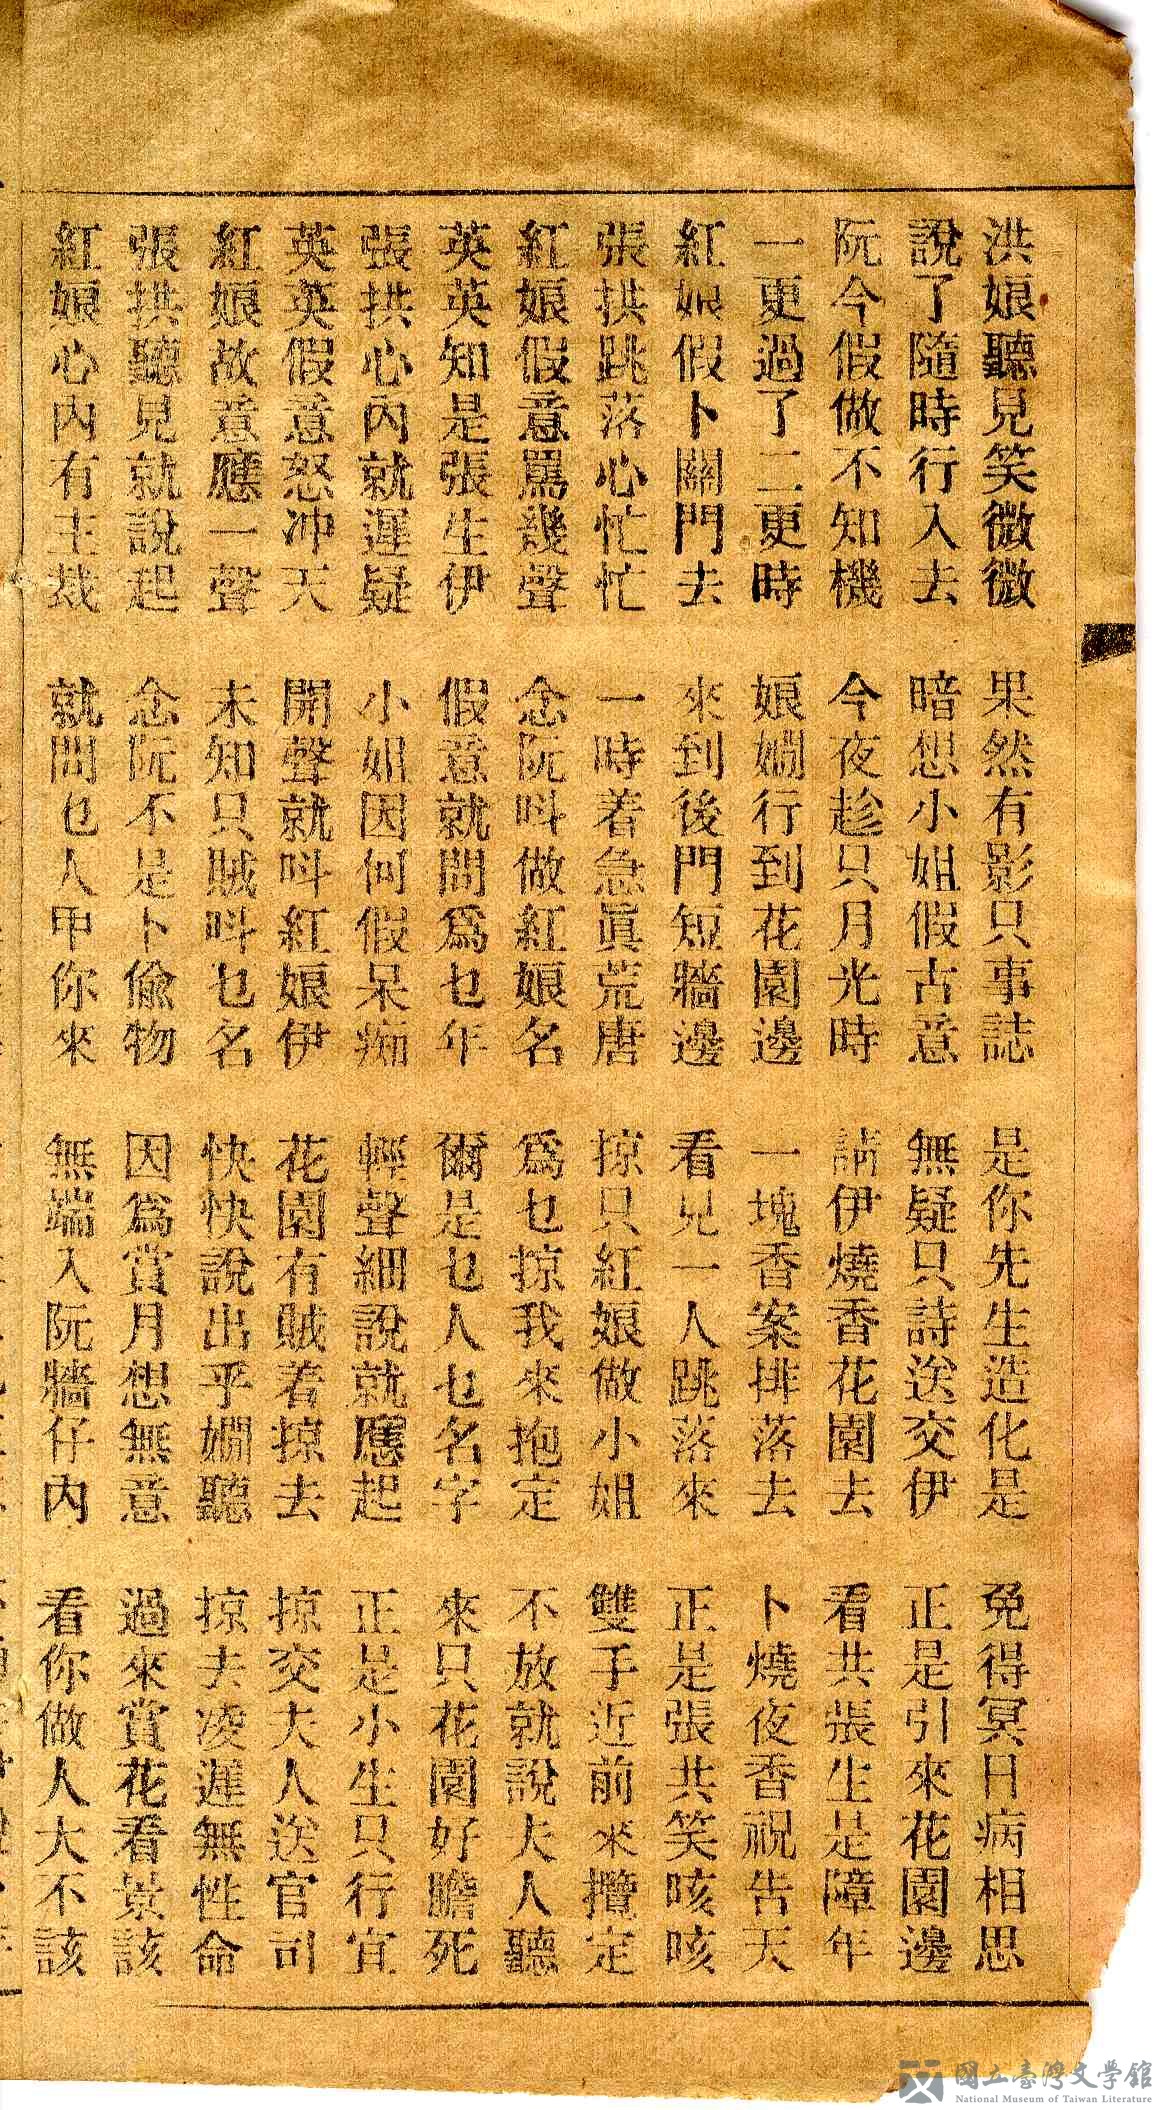 洪娘聽見笑微微　果然有影只事誌　是你先生造化是　免得冥日病相思
說了隨時行入去　暗想小姐假古意　無疑只詩送交伊　正是引來花園邊
阮今假做不知機　今夜趁只月光時　請伊燒香花園去　看共張生是障年
一更過了二更時　娘嫺行到花園邊　一塊香案排落去　卜燒夜香祝告天
紅娘假卜關門去　來到後門短牆邊　看見一人跳落來　正是張共笑咳咳
張拱跳落心忙忙　一時着急眞荒唐　掠只紅娘做小姐　雙手近前來攬定
紅娘假意罵幾聲　念阮呌做紅娘名　爲乜掠我來抱定　不放就說夫人聽
英英知是張生伊　假意就問爲乜年　爾是乜人乜名字　來只花園好膽死
張拱心內就遲疑　小姐因何假呆痴　輕聲細說就應起　正是小生只行宜
英英假意怒冲天　開聲就呌紅娘伊　花園有賊着掠去　掠交夫人送官司
紅娘故意應一聲　未知只賊呌乜名　快快說出乎嫺聽　掠去凌遲無性命
張拱聽見就說起　念阮不是卜偸物　因爲賞月想無意　過來賞花看景該
紅娘心內有主裁　就問乜人甲你來　無端入阮牆仔內　看你做人大不該
國立臺灣文學館
National Museum of Taiwan Literature